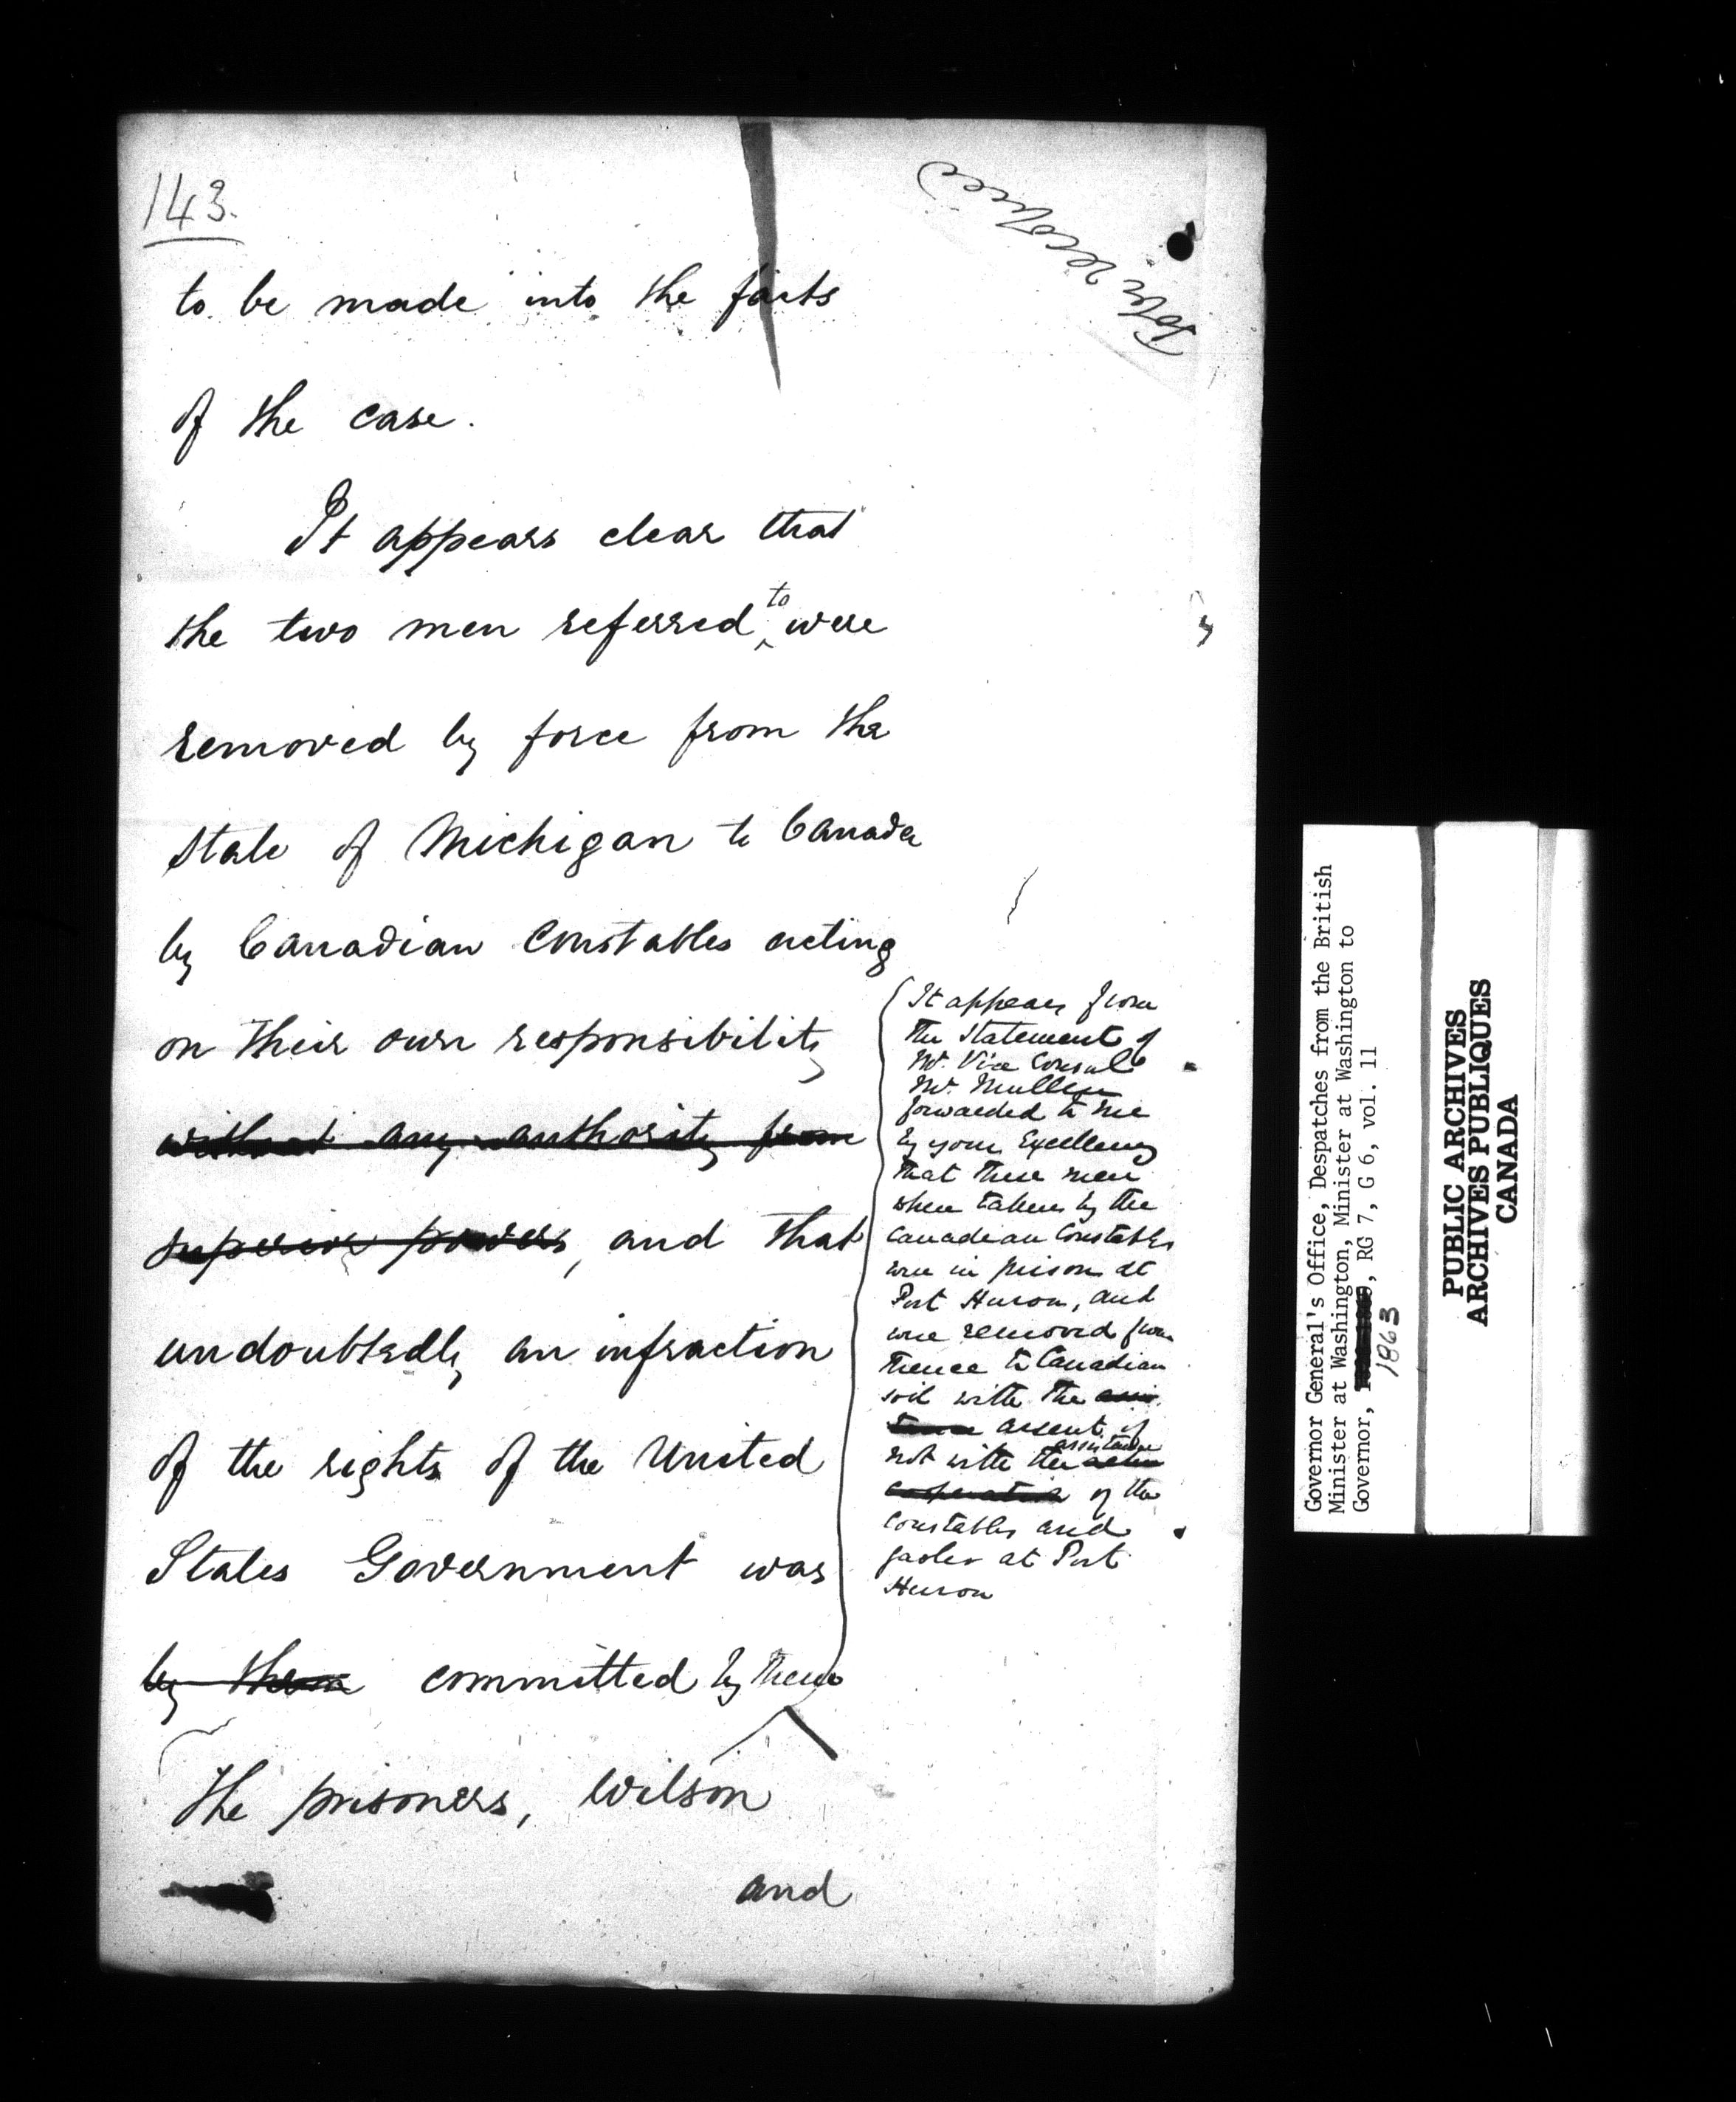 143.
to be made into the facts
of the case.
It appears clear that
the two men referred to were
removed by force from the
State of Michigan to Canada
by Canadian Constables acting
on their own responsibility
without any authority from
superior powers, and that
undoubtedly an infraction
of the rights of the United
States Government was
by them committed by them
The prisoners, Wilson
and
It appears from
the Statement of
Mr. Vice Consul
Mr. Mullen
forwarded to me
by your Excellency
that these men
when taken by the
Canadian Constables
were in prison at
Port Huron, and
were removed from
thence to Canadian
soil with the assis
tance assent, if
not with the assistance active
cooperation of the
Constables and
gaoler at Port
Huron
Governor General's Office, Despatches from the British
Minister at Washington, Minister at Washington to
Governor, RG 7, G 6, vol. 11
1863
PUBLIC ARCHIVES
ARCHIVES PUBLIQUES
CANADA